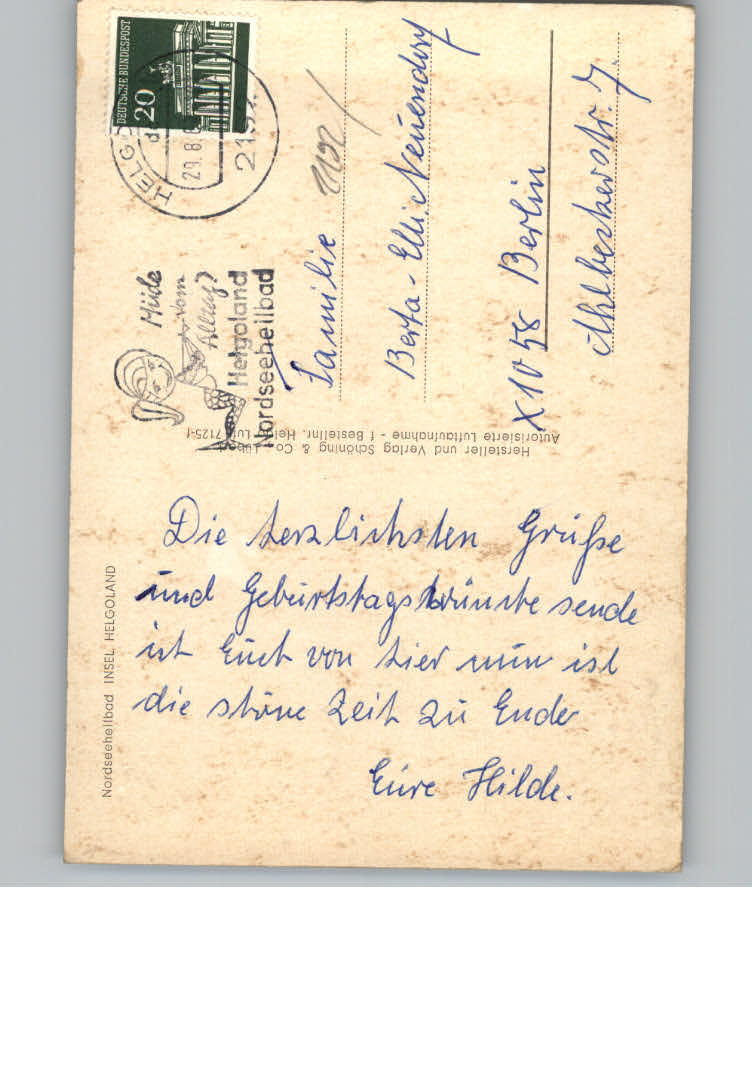 Die herzlichsten Grüße
und Geburtstagswünsche sende
ich Euch von hier nun ist
die schöne Zeit zu Ende
Eure Hilde.
Familie
Berta-Elli Neuendorf
X1058 Berlin
Ahlbeckerstr. 7.
2192
DEUTSCHE BUNDESPOST
20
HELGO
29.8.
2192
Müde
vom
Alltag?
Helgoland
Nordseeheilbad
Nordseeheilbad INSEL HELGOLAND
Hersteller und Verlag Schöning & Co. Lübeck
Autorisierte Luftaufnahme - f Bestellnr. Helgo Lu 7125-f